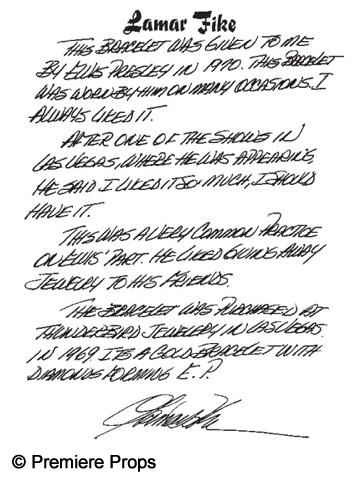 Lamar Fike
THIS BRACELET WAS GIVEN TO ME
BY ELVIS PRESLEY IN 1970. THIS BRACELET
WAS WORN BY HIM ON MANY OCCASIONS. I
ALWAYS LIKED IT.
AFTER ONE OF THE SHOWS IN
LAS VEGAS, WHERE HE WAS APPEARING,
HE SAID I LIKED IT SO MUCH, I SHOULD
HAVE IT.
THIS WAS A VERY COMMON PRACTICE
ON ELVIS' PART. HE LIKED GIVING AWAY
JEWELRY TO HIS FRIENDS.
THE BRACELET WAS PURCHASED AT
THUNDERBIRD JEWELERY IN LAS VEGAS.
IN 1969 ITS A GOLD BRACELET WITH
DIAMONDS FORMING E.P.
© Premiere Props